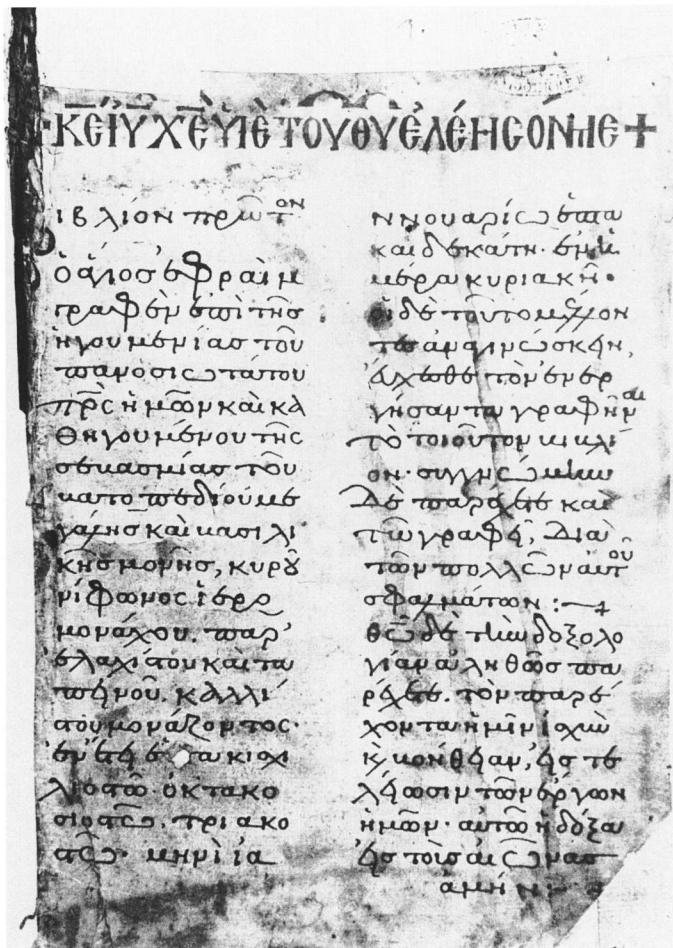 ΚΕ ΙΥ ΧΕ ΥἹΕ ΤΟΥ ΘΥ ἘΛΕΗCΟΝ ΜΕ +
ιβλίον πρῶτον
ὁ ἅγιος ἐφραὶμ
γραφὲν ἐπὶ τῆς
ἡγουμενίας τοῦ
πανοσιωτάτου
πρς ἡμῶν καὶ κα
θηγουμένου τῆς
σεβασμίας τοῦ
βατοπεδίου με
γάλης καὶ βασιλι
κῆς μονῆς, κυροῦ
νίφωνος ἱερο
μονάχου. παρ'
ἐλαχίστου καὶ τα
πεινοῦ. καλλί
στου μονάζοντος·
ἐν ἔτει ἑξακισχι
λιοστῶ ὀκτακο
σιοστῶ. τριακο
στῶ· μηνὶ ἰα
ννουαρίω ἑπτα
καὶ δεκάτη· ἐν ἡ
μέρα κυριακῆ·
οἱ δὲ τοῦτο μέλλον
τες ἀναγινώσκειν,
εὔχεσθε τὸν ἐνερ
γήσαντα γραφῆναι
τὸ τοιοῦτον βιβλί
ον· συγγνώμην
δὲ παράσχετε καὶ
τῶ γραφεῖ, διὰ
τῶν πολλῶν αὐτοῦ
σφαλμάτων :
θῶ δὲ τὴν δοξολο
γίαν ἀληθῶς πα
ρέχετε. τὸν παρέ
χοντα ἡμῖν ἰσχὺν
κ βοήθειαν, εἰς τε
λείωσιν τῶν ἔργων
ἡμῶν· αὐτῶ ἡ δόξα
εἰς τοὺς αἰῶνας
ἀμήν